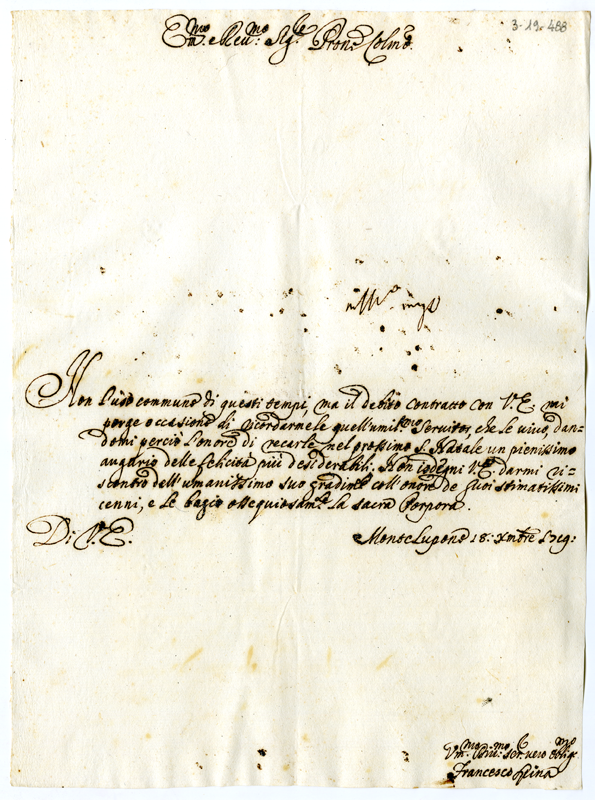 3-19-488
Em.mo e Rev.mo Sig.re Pron.e Colmo.
Non l'uso commune di questi tempi, ma il debito contratto con V.E. mi
porge occasione di ricordarmele quell'umil.mo Servitor, che le vivo, dan-
domi perciò l'onore di recarle nel prossimo S. Natale un pienissimo
augurio delle felicità più desiderabili. Non isdegni V.E. darmi ri-
scontro dell'umanissimo suo gradim.to coll'onore de suoi stimatissimi
cenni, e le bagio ossequiosam.te la sacra Porpora.
Di V.E.
Monte Lupone 18: Xmbre
Francesco